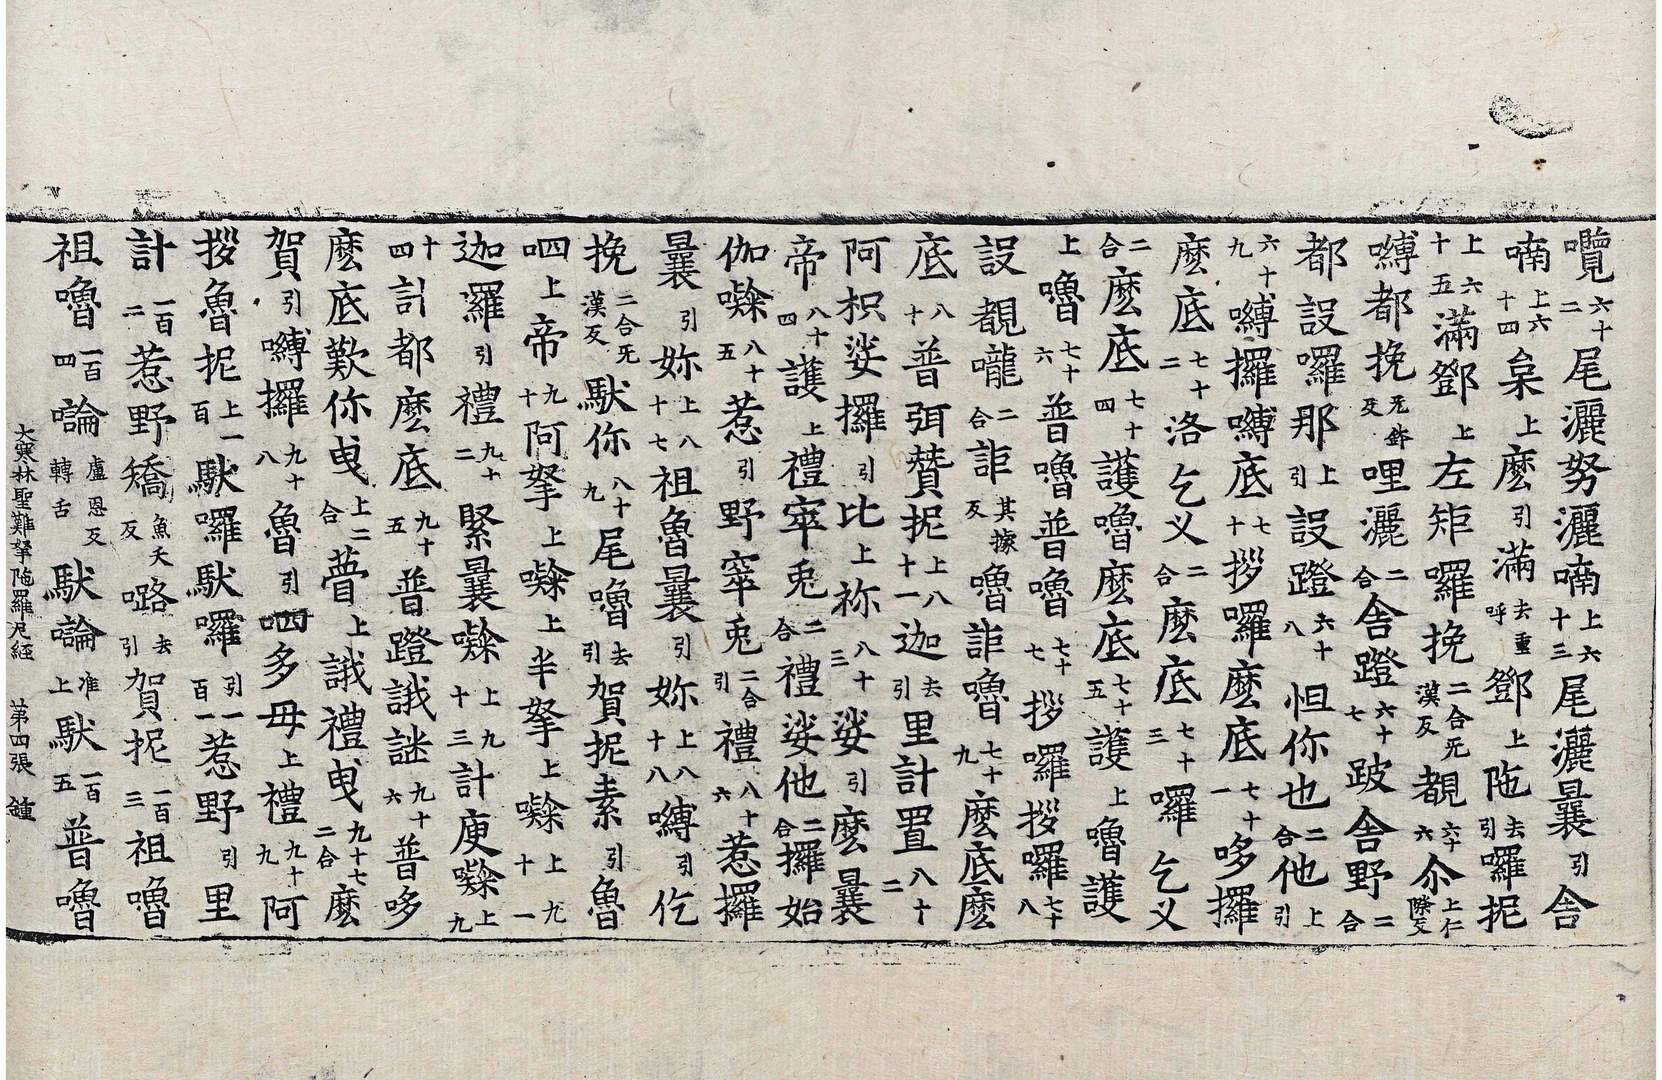 囕六十二尾灑努灑喃上六十三尾灑曩引舍
喃上六十四枲上麼引滿去重呼鄧上陁去引囉抳
上六十五滿鄧上左矩囉挽二合无漢反覩六十六尒上仁際反
嚩都挽无鉢反哩灑二合舍蹬六十七跛舍野二合
都設囉那上引設蹬六十八怛你也二合他上引
六十九嚩攞嚩底七十拶囉麼底七十一哆攞
麼底七十二洛乞义二合麼底七十三囉乞义
二合麼底七十四護嚕麼底七十五護上嚕護
上嚕七十六普嚕普嚕七十七拶囉拶囉七十八
設覩嚨二合詎其據反嚕詎嚕七十九麼底麼
底八十普弭贊抳上八十一迦去引里計置八十二
阿枳娑攞引比上祢八十三娑引麼曩
帝八十四護上禮窣兎二合禮娑他二合攞始
伽㗚八十五惹引野窣兎二合引禮八十六惹攞
曩引妳上八十七祖魯曩引妳上八十八嚩引仡
挽二合无漢反馱你八十九尾嚕去引賀抳素引魯
呬上帝九十阿拏上㗚上半拏上㗚上九十一
迦羅引禮九十二緊曩㗚上九十三計庾㗚上九
十四計都麼底九十五普蹬誐謎九十六普哆
麼底歎你曳上二合瞢上誐禮曳九十七二合麼
賀引嚩攞九十八魯引呬多毋上禮九十九阿
拶魯抳上一百馱囉馱囉引一百一惹野引里
計一百二惹野矯魚夭反㗉去引賀抳一百三祖嚕
祖嚕一百四㘕盧恩反轉舌馱㘕准上馱一百五普嚕
大寒林聖難拏陁羅尼經　第四張　鍾